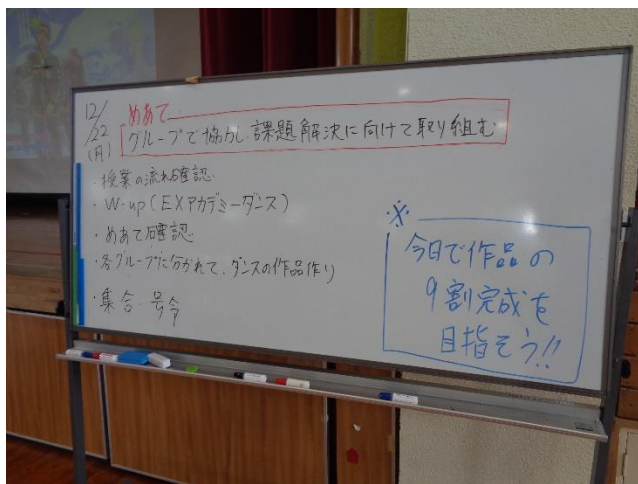 12/22(月)
めあて
グループで協力し、課題解決に向けて取り組む
・授業の流れ確認
・W-up(EXアカデミーダンス)
・めあて確認
・各グループに分かれて、ダンスの作品作り
・集合、号令
※
今日で作品の
9割完成を
目指そう!!